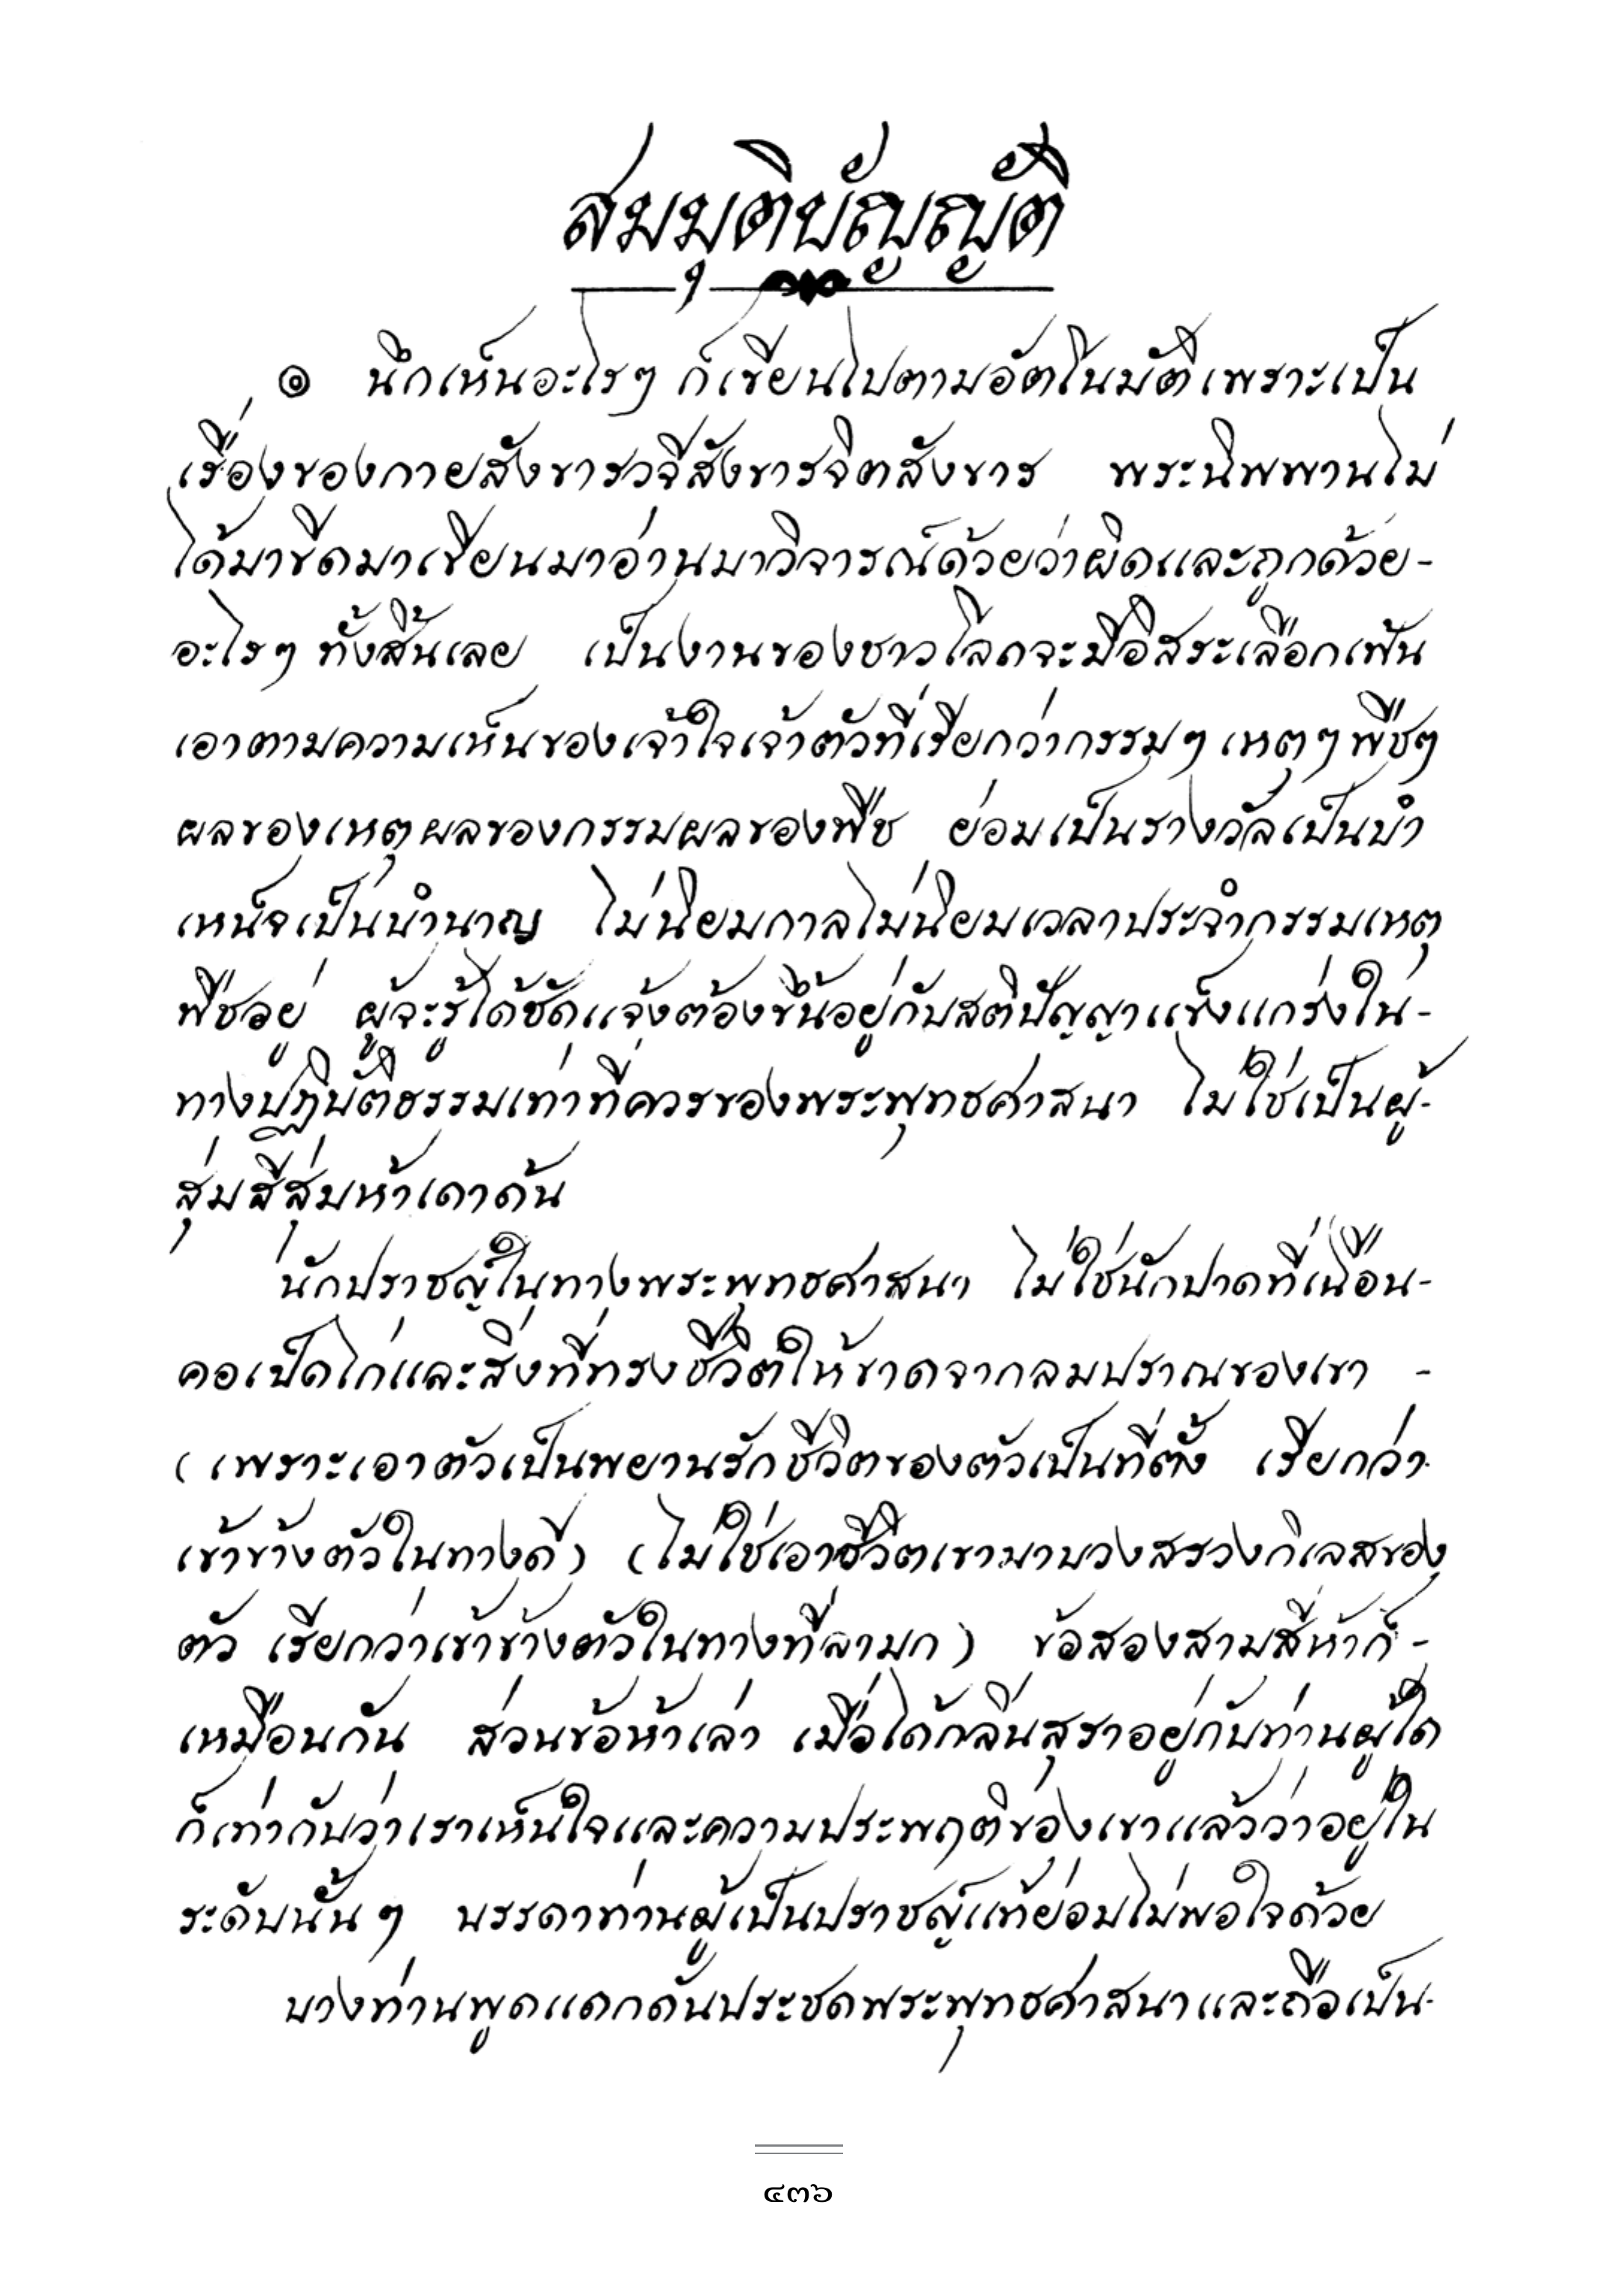 สมมุติบัญญัติ
๑ นึกเห็นอะไรๆ ก็เขียนไปตามอัตโนมัติ เพราะเป็น
เรื่องของกายสังขารวจีสังขารจิตสังขาร พระนิพพานไม่
ได้มาขีดมาเขียนมาอ่านมาวิจารณ์ด้วยว่าผิดและถูกด้วย-
อะไรๆ ทั้งสิ้นเลย เป็นงานของชาวโลกจะมีอิสระเลือกเฟ้น
เอาตามความเห็นของเจ้าใจเจ้าตัวที่เรียกว่ากรรมๆ เหตุๆ พืชๆ
ผลของเหตุผลของกรรมผลของพืช ย่อมเป็นรางวัลเป็นบำ
เหน็จเป็นบำนาญ ไม่นิยมกาลไม่นิยมเวลาประจำกรรมเหตุ
พืชอยู่ ผู้จะรู้ได้ชัดแจ้งต้องขึ้นอยู่กับสติปัญญาแข็งแกร่งใน-
ทางปฏิบัติธรรมเท่าที่ควรของพระพุทธศาสนา ไม่ใช่เป็นผู้-
สุ่มสี่สุ่มห้าเดาด้น
นักปราชญ์ในทางพระพุทธศาสนา ไม่ใช่นักปาดที่เฉือน-
คอเป็ดไก่และสิ่งที่ทรงชีวิตให้ขาดจากลมปราณของเขา -
(เพราะเอาตัวเป็นพยานรักชีวิตของตัวเป็นที่ตั้ง เรียกว่า
เข้าข้างตัวในทางดี) (ไม่ใช่เอาชีวิตเขามาบวงสรวงกิเลสของ
ตัว เรียกว่าเข้าข้างตัวในทางที่ลามก) ข้อสองสามสี่ห้าก็ -
เหมือนกัน ส่วนข้อห้าเล่า เมื่อได้กลิ่นสุราอยู่กับท่านผู้ใด
ก็เท่ากับว่าเราเห็นใจและความประพฤติของเขาแล้วว่าอยู่ใน
ระดับนั้นๆ บรรดาท่านผู้เป็นปราชญ์แท้ย่อมไม่พอใจด้วย
บางท่านพูดแดกดันประชดพระพุทธศาสนาและถือเป็น-
๔๓๖